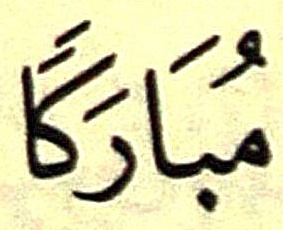 مُبَارَكًا